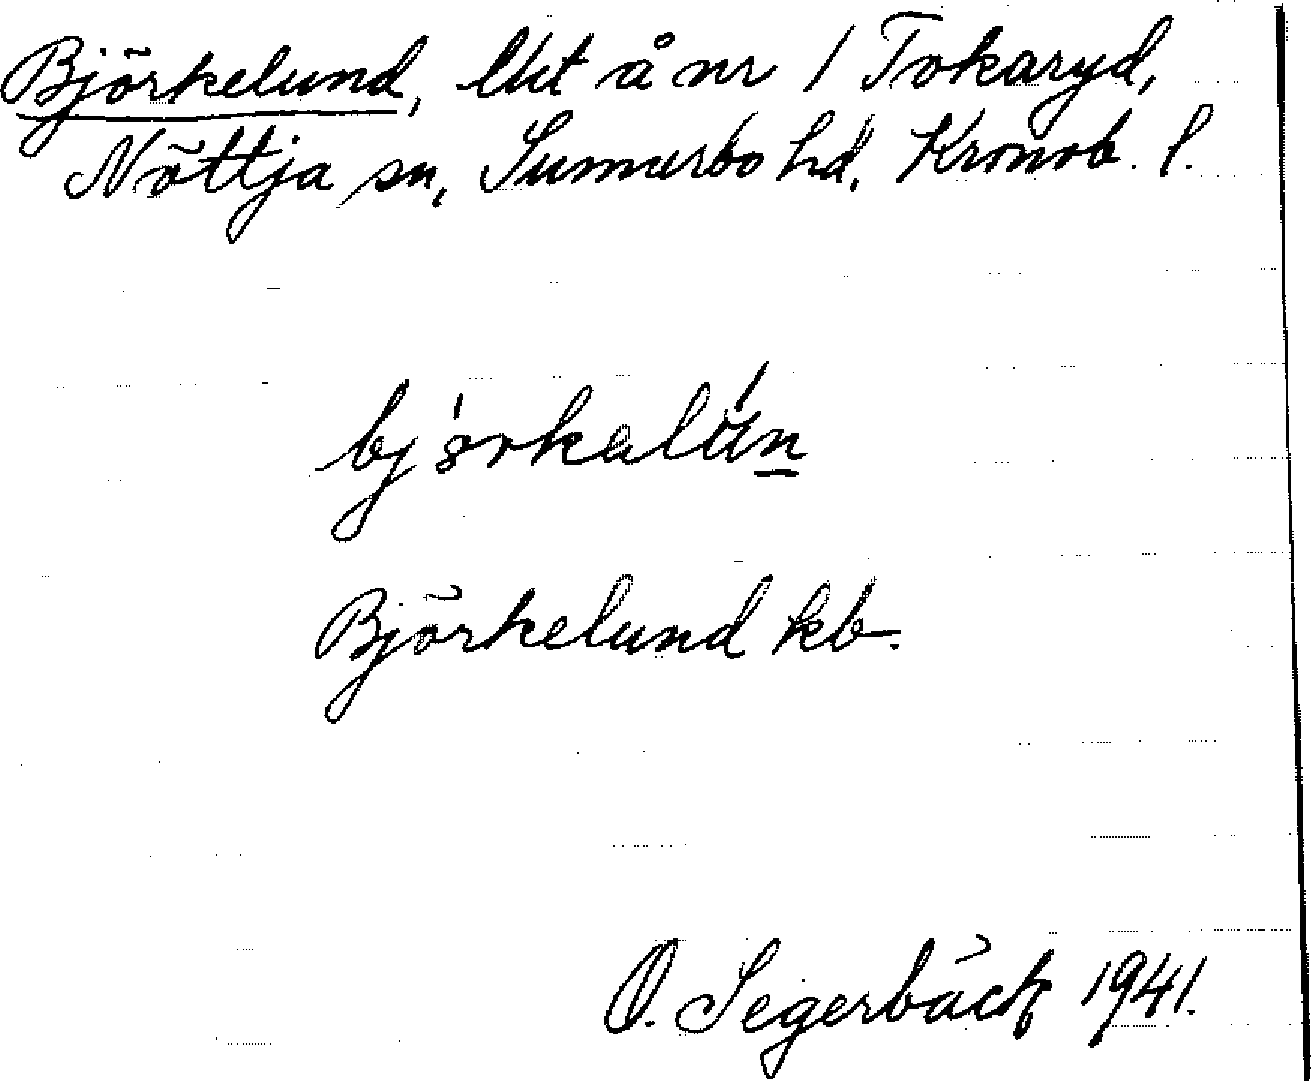 Björkelund, lht å nr 1 Tokaryd,
Nöttja sn, Sunnerbo hd, Kronob. l.
Björkelund kb.
O. Segerbäck 1941.